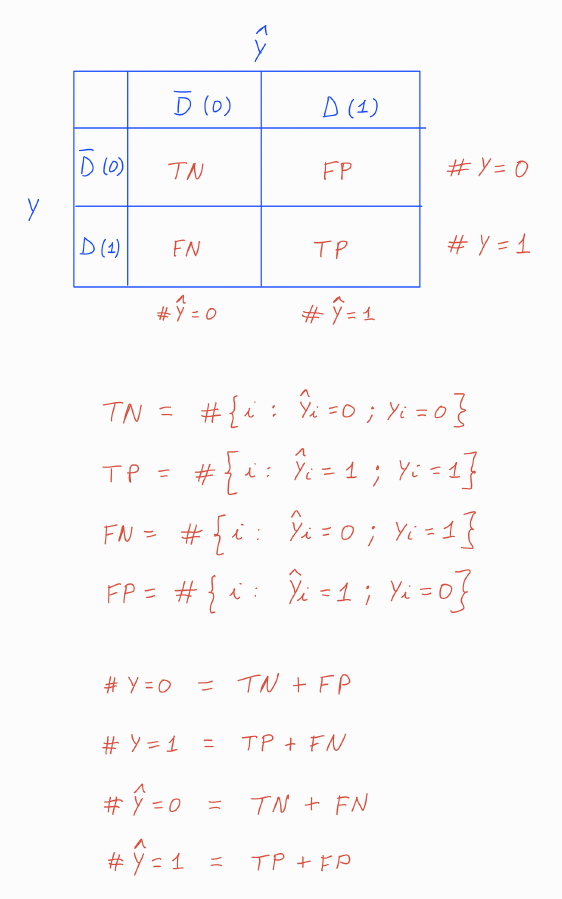 ŷ
D̅ (0) D (1)
D̅ (0) TN FP # Y = 0
y
D (1) FN TP # Y = 1
# Ŷ = 0 # Ŷ = 1
TN = # { i : Ŷi = 0 ; Yi = 0 }
TP = # { i : Ŷi = 1 ; Yi = 1 }
FN = # { i : Ŷi = 0 ; Yi = 1 }
FP = # { i : Ŷi = 1 ; Yi = 0 }
# Y = 0 = TN + FP
# Y = 1 = TP + FN
# Ŷ = 0 = TN + FN
# Ŷ = 1 = TP + FP